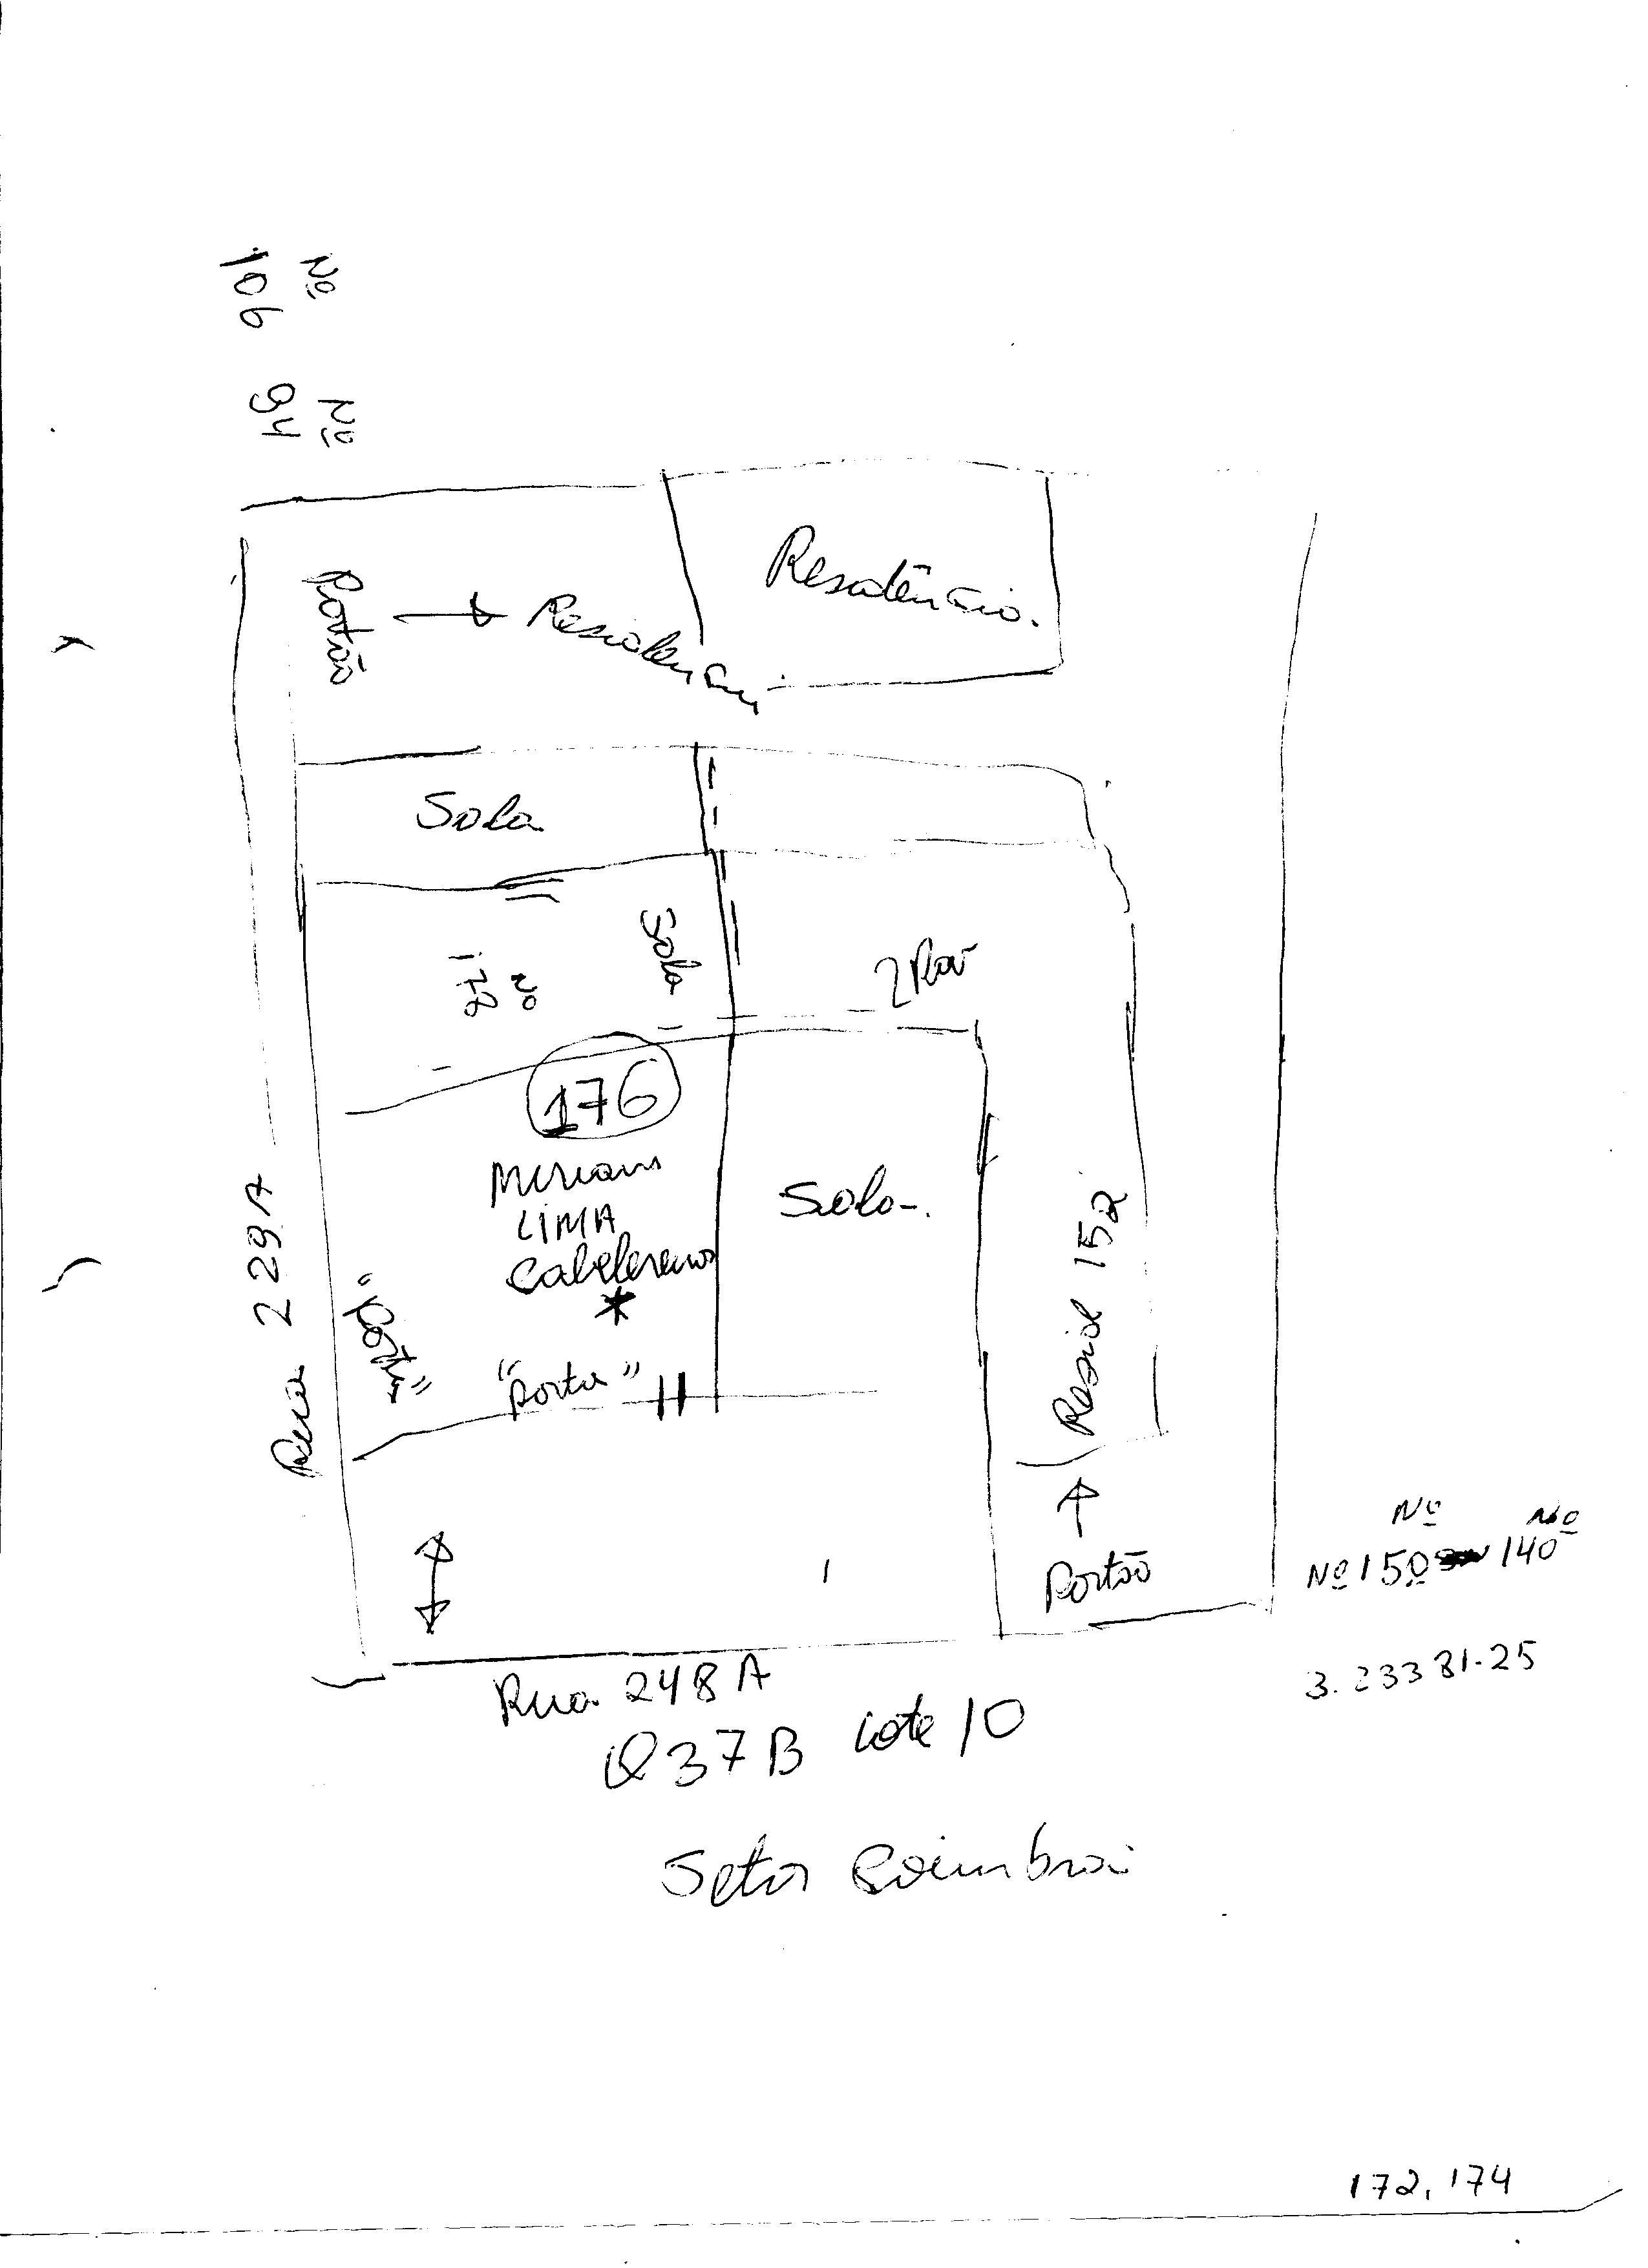 Nº
106
Nº
94
Portão
Residência.
Sala
Sala
Nº
172
2 Pav
176
LIMA
Sala.
Resid 152
Rua 229A
"Porta"
"Porta"
Portão
Nº Nº
Nº 150 140
Rua 248 A
Q 37 B Lote 10
Setor Coimbra
172, 174